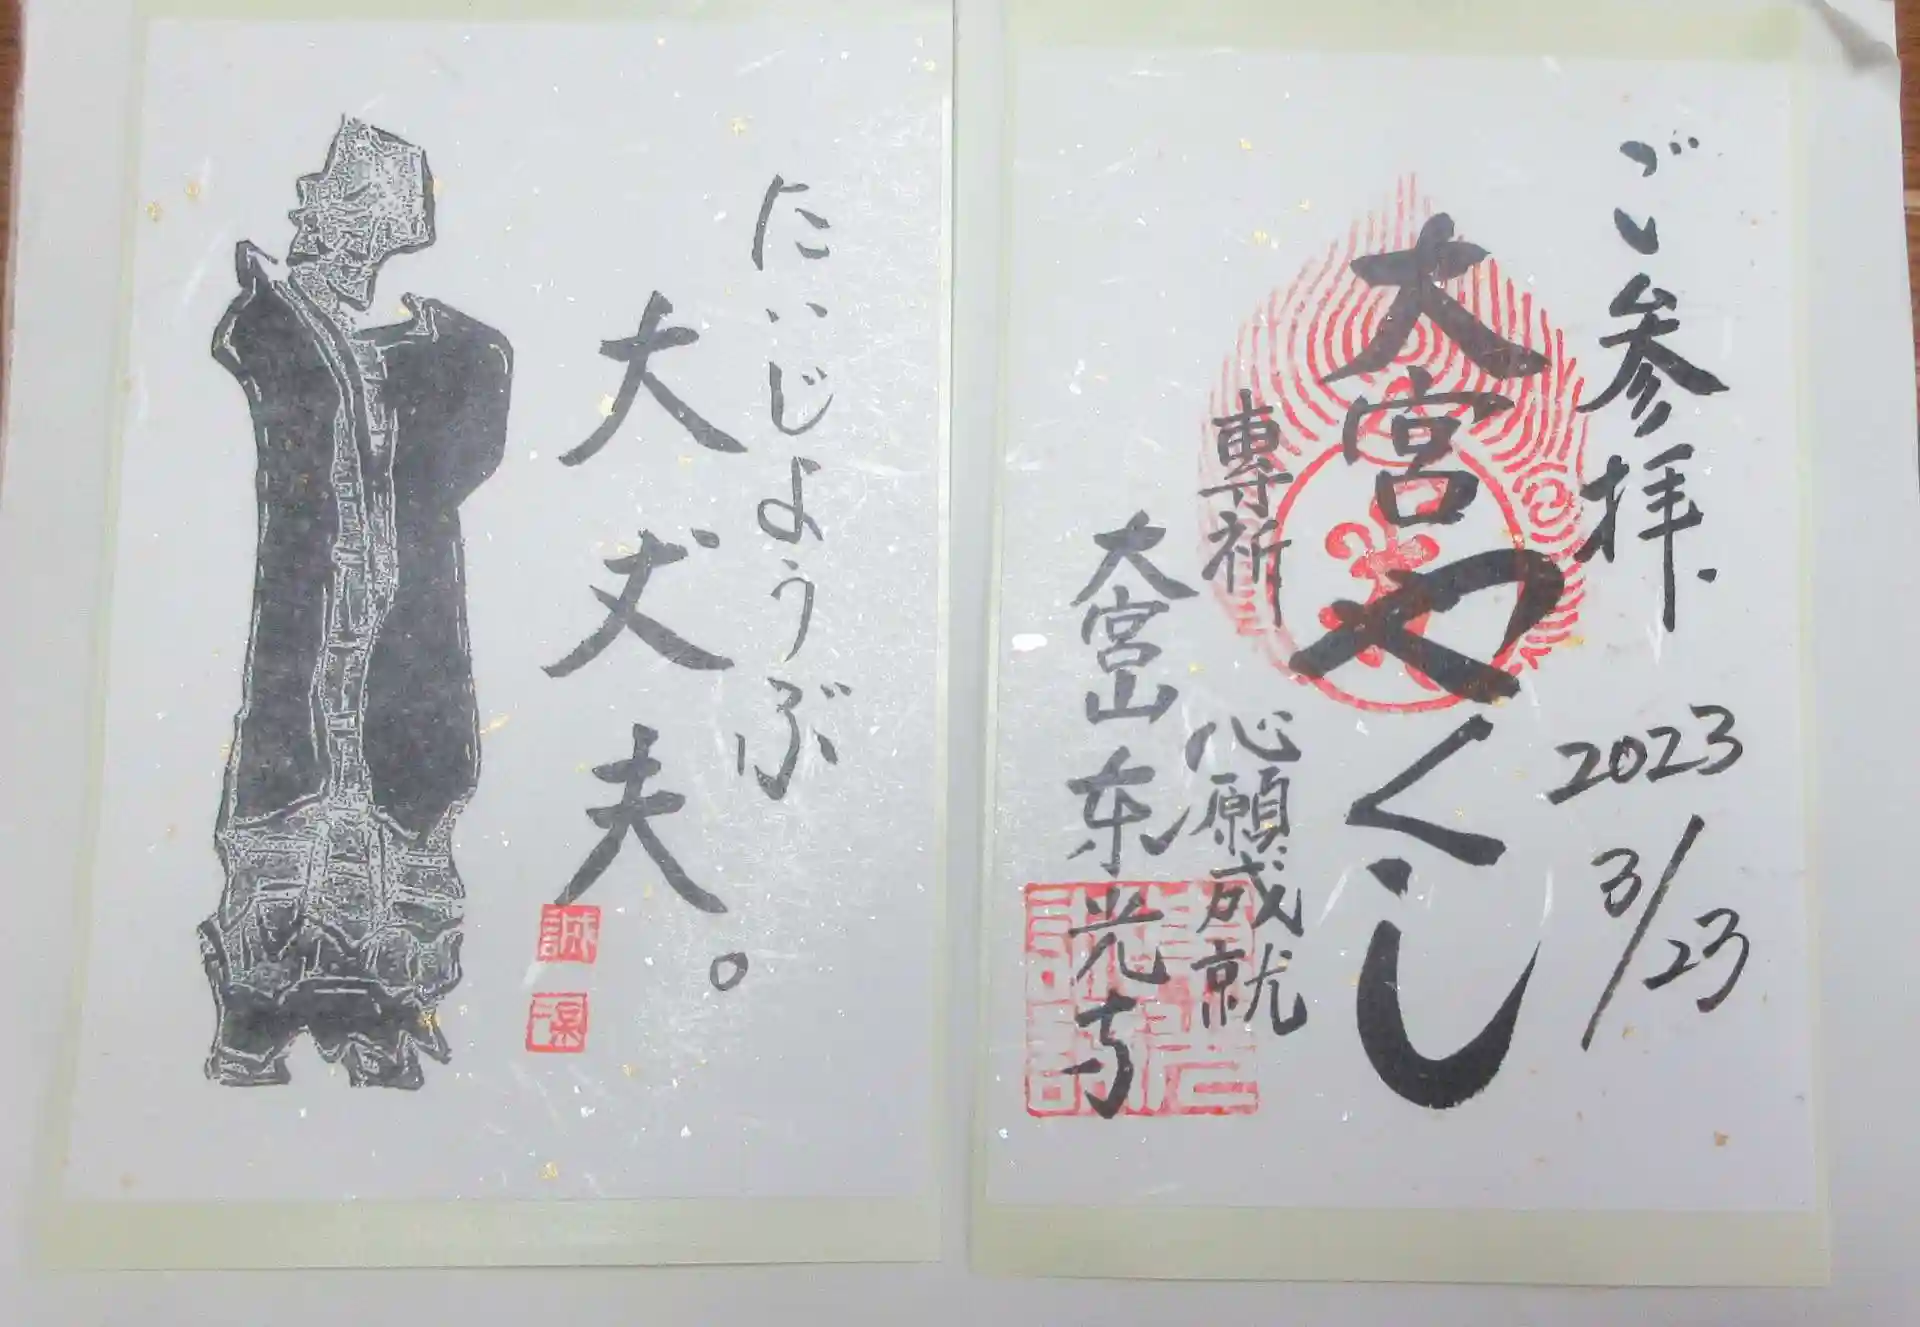 ご参拝.
2023
3/23
大宮やくし
専祈 心願成就
大宮山 東光寺
だいじょうぶ
大丈夫。
誠